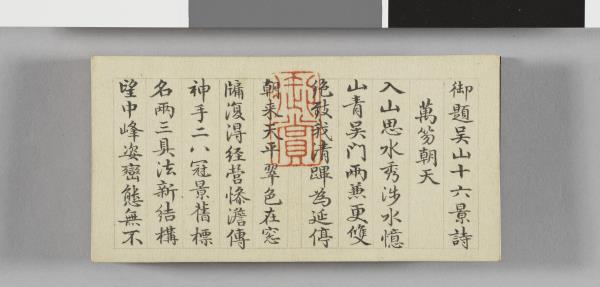 御題吳山十六景詩
萬笏朝天
入山思水秀涉水憶
山青吳門兩兼更雙
絕致我清蹕為延停
朝來天平翠色在窓
牖復得經營慘澹傳
神手二八冠景舊標
名兩三具法新結構
望中峰姿巒態無不